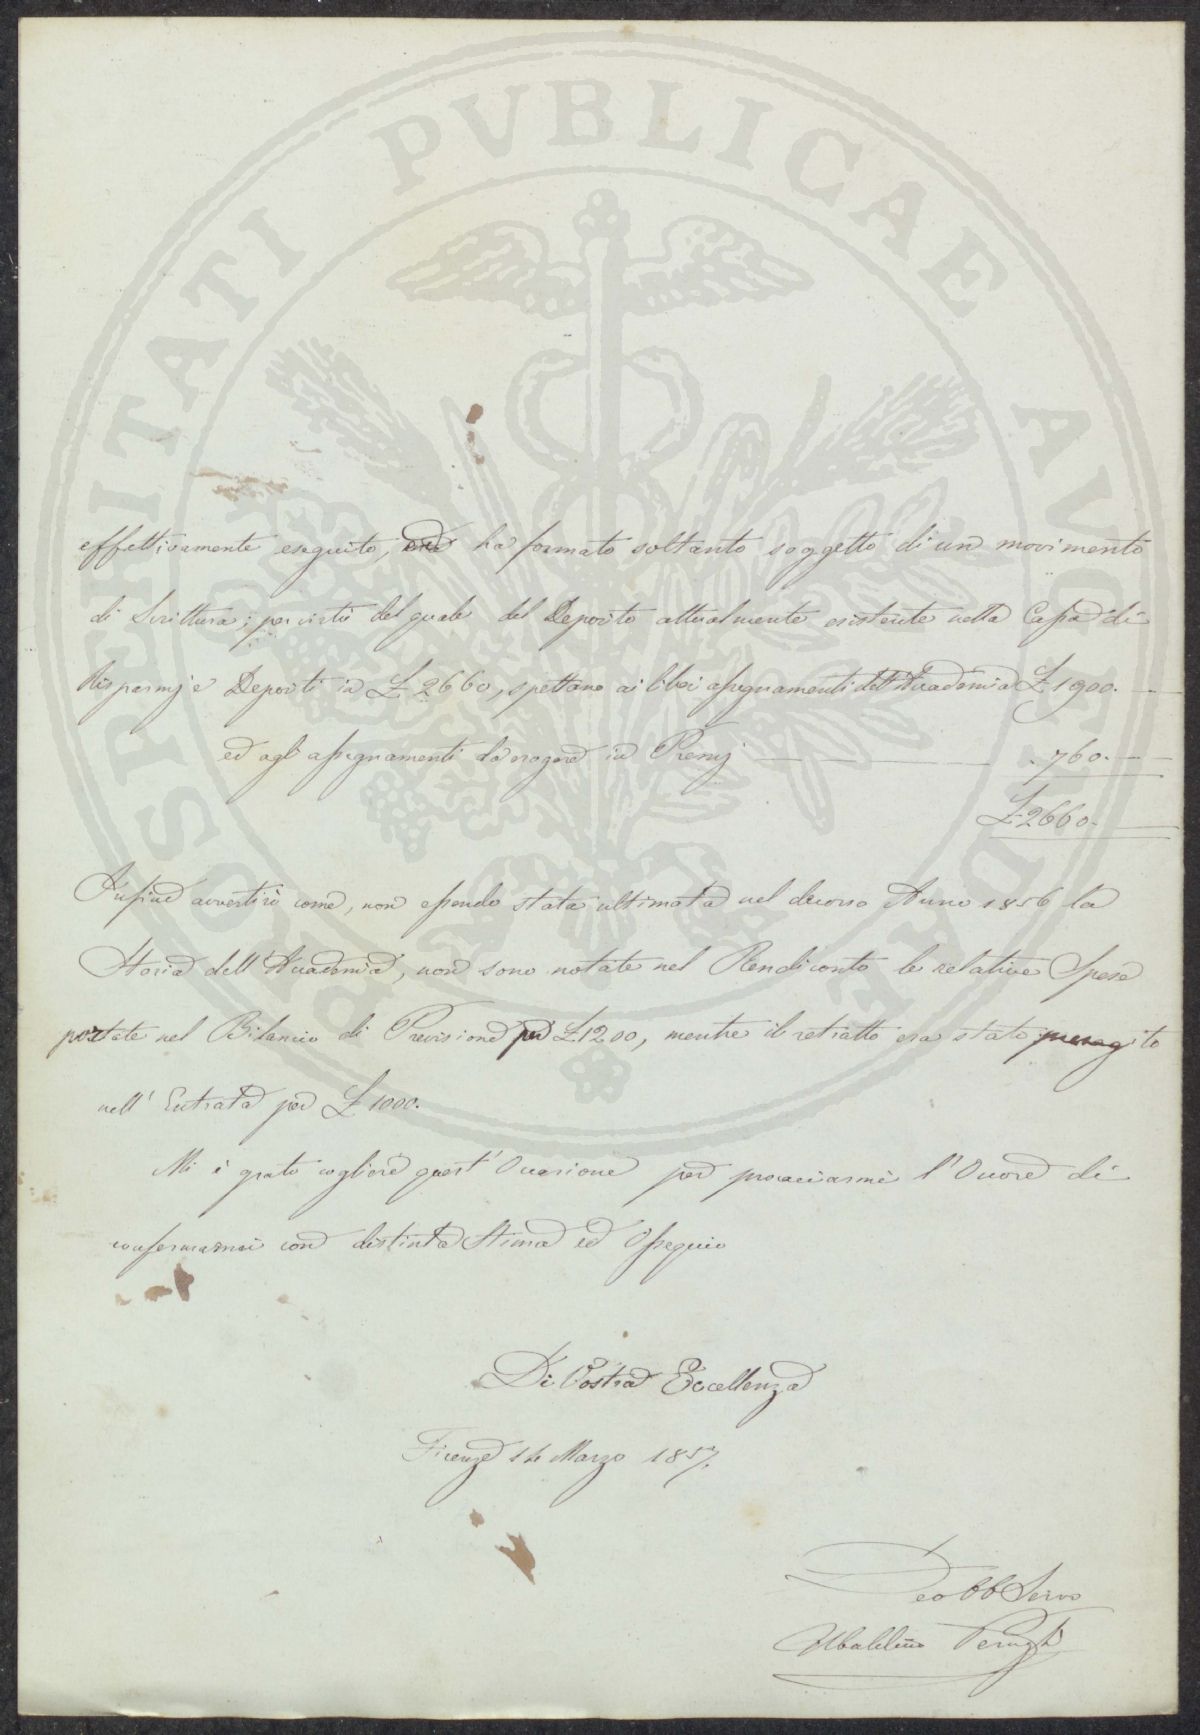 PROSPERITATI PVBLICAE AVGENDAE
effettivamente eseguito, ha formato soltanto soggetto di un movimento
di Scrittura; per virtù del quale del Deposito attualmente esistente nella Cassa di
Risparmj e Depositi in £ 2660, spettano ai liberi assegnamenti dell'Accademia £ 1900.
ed agl'assegnamenti da erogare in Premj 760.
£ 2660.
Infine avvertirò come, non essendo stata ultimata nel decorso Anno 1856 la
Storia dell'Accademia, non sono notate nel Rendiconto le relative Spese
portate nel Bilancio di Previsione per £ 1200, mentre il retratto era stato
nell'Entrata per £ 1000.
Mi è grato cogliere quest'Occasione per procacciarmi l'Onore di
confermarmi con distinta Stima ed Ossequio
Di Vostra Eccellenza
Firenze 14 Marzo 1857.
Deo bb Servo
Ubaldino Peruzzi